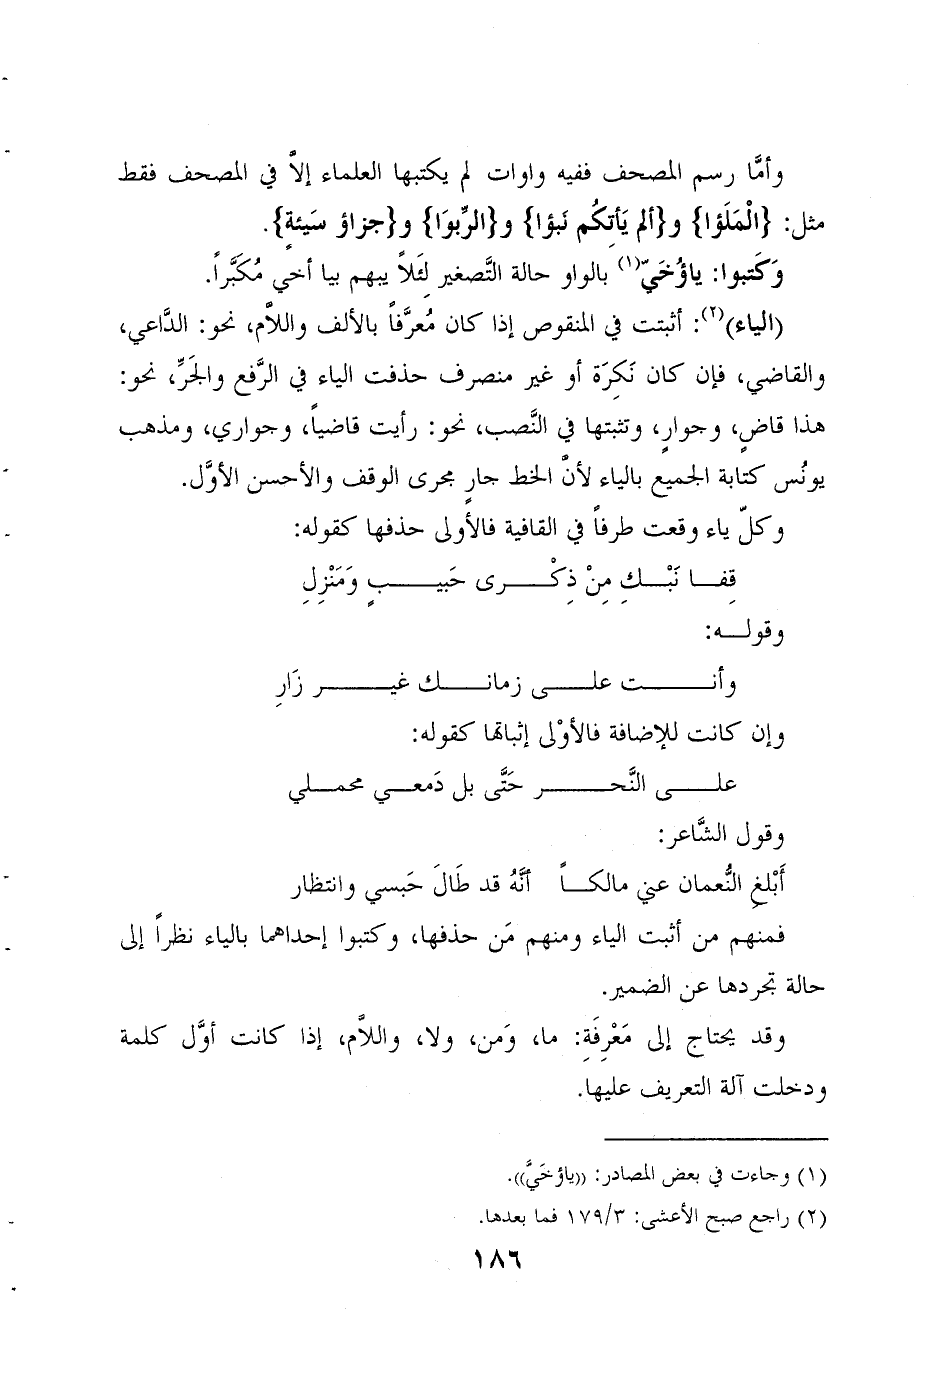 وأمَّا رسم المصحف ففيه واوات لم يكتبها العلماء إلاَّ في المصحف فقط
مثل: {الْمَلَؤا} و{ألم يَأتِكُم نَبؤا} و{الرِّبوَا} و{جزاؤ سَيئةٍ}.
وَكَتبوا: ياؤُخَيّ(١) بالواو حالة التَّصغير لِئَلاَّ يبهم بيا أخي مُكَبَّراً.
(الياء)(٢): أثبتت في المنقوص إذا كان مُعرَّفاً بالألف واللاَّم، نحو: الدَّاعي،
والقاضي، فإن كان نَكِرَة أو غير منصرف حذفت الياء في الرَّفع والجَرِّ، نحو:
هذا قاضٍ، وجوارٍ، وتثبتها في النَّصب، نحو: رأيت قاضياً، وجواري، ومذهب
يونُس كتابة الجميع بالياء لأنَّ الخط جارٍ مجرى الوقف والأحسن الأوَّل.
وكلّ ياء وقعت طرفاً في القافية فالأولى حذفها كقوله:
قِفــا نَبْــكِ مِنْ ذِكْـــرى حَبيـــبٍ وَمَنْزِلِ
وقولـــه:
وأنـــــت علـــى زمانـــك غيـــــر زَارِ
وإن كانت للإضافة فالأوْلى إثباتها كقوله:
علـــى النَّحـــــر حَتَّى بل دَمعـــي محمـــلي
وقول الشَّاعر:
أَبْلغِ النُّعمان عني مالكــاً أنَّهُ قد طَالَ حَبسي وانتظار
فمنهم من أثبت الياء ومنهم مَن حذفها، وكتبوا إحداهما بالياء نظراً إلى
حالة تجردها عن الضمير.
وقد يحتاج إلى مَعْرِفَةِ: ما، وَمن، ولا، واللاَّم، إذا كانت أوَّل كلمة
ودخلت آلة التعريف عليها.
(١) وجاءت في بعض المصادر: ((ياؤخَيَّ)).
(٢) راجع صبح الأعشى: ١٧٩/٣ فما بعدها.
١٨٦